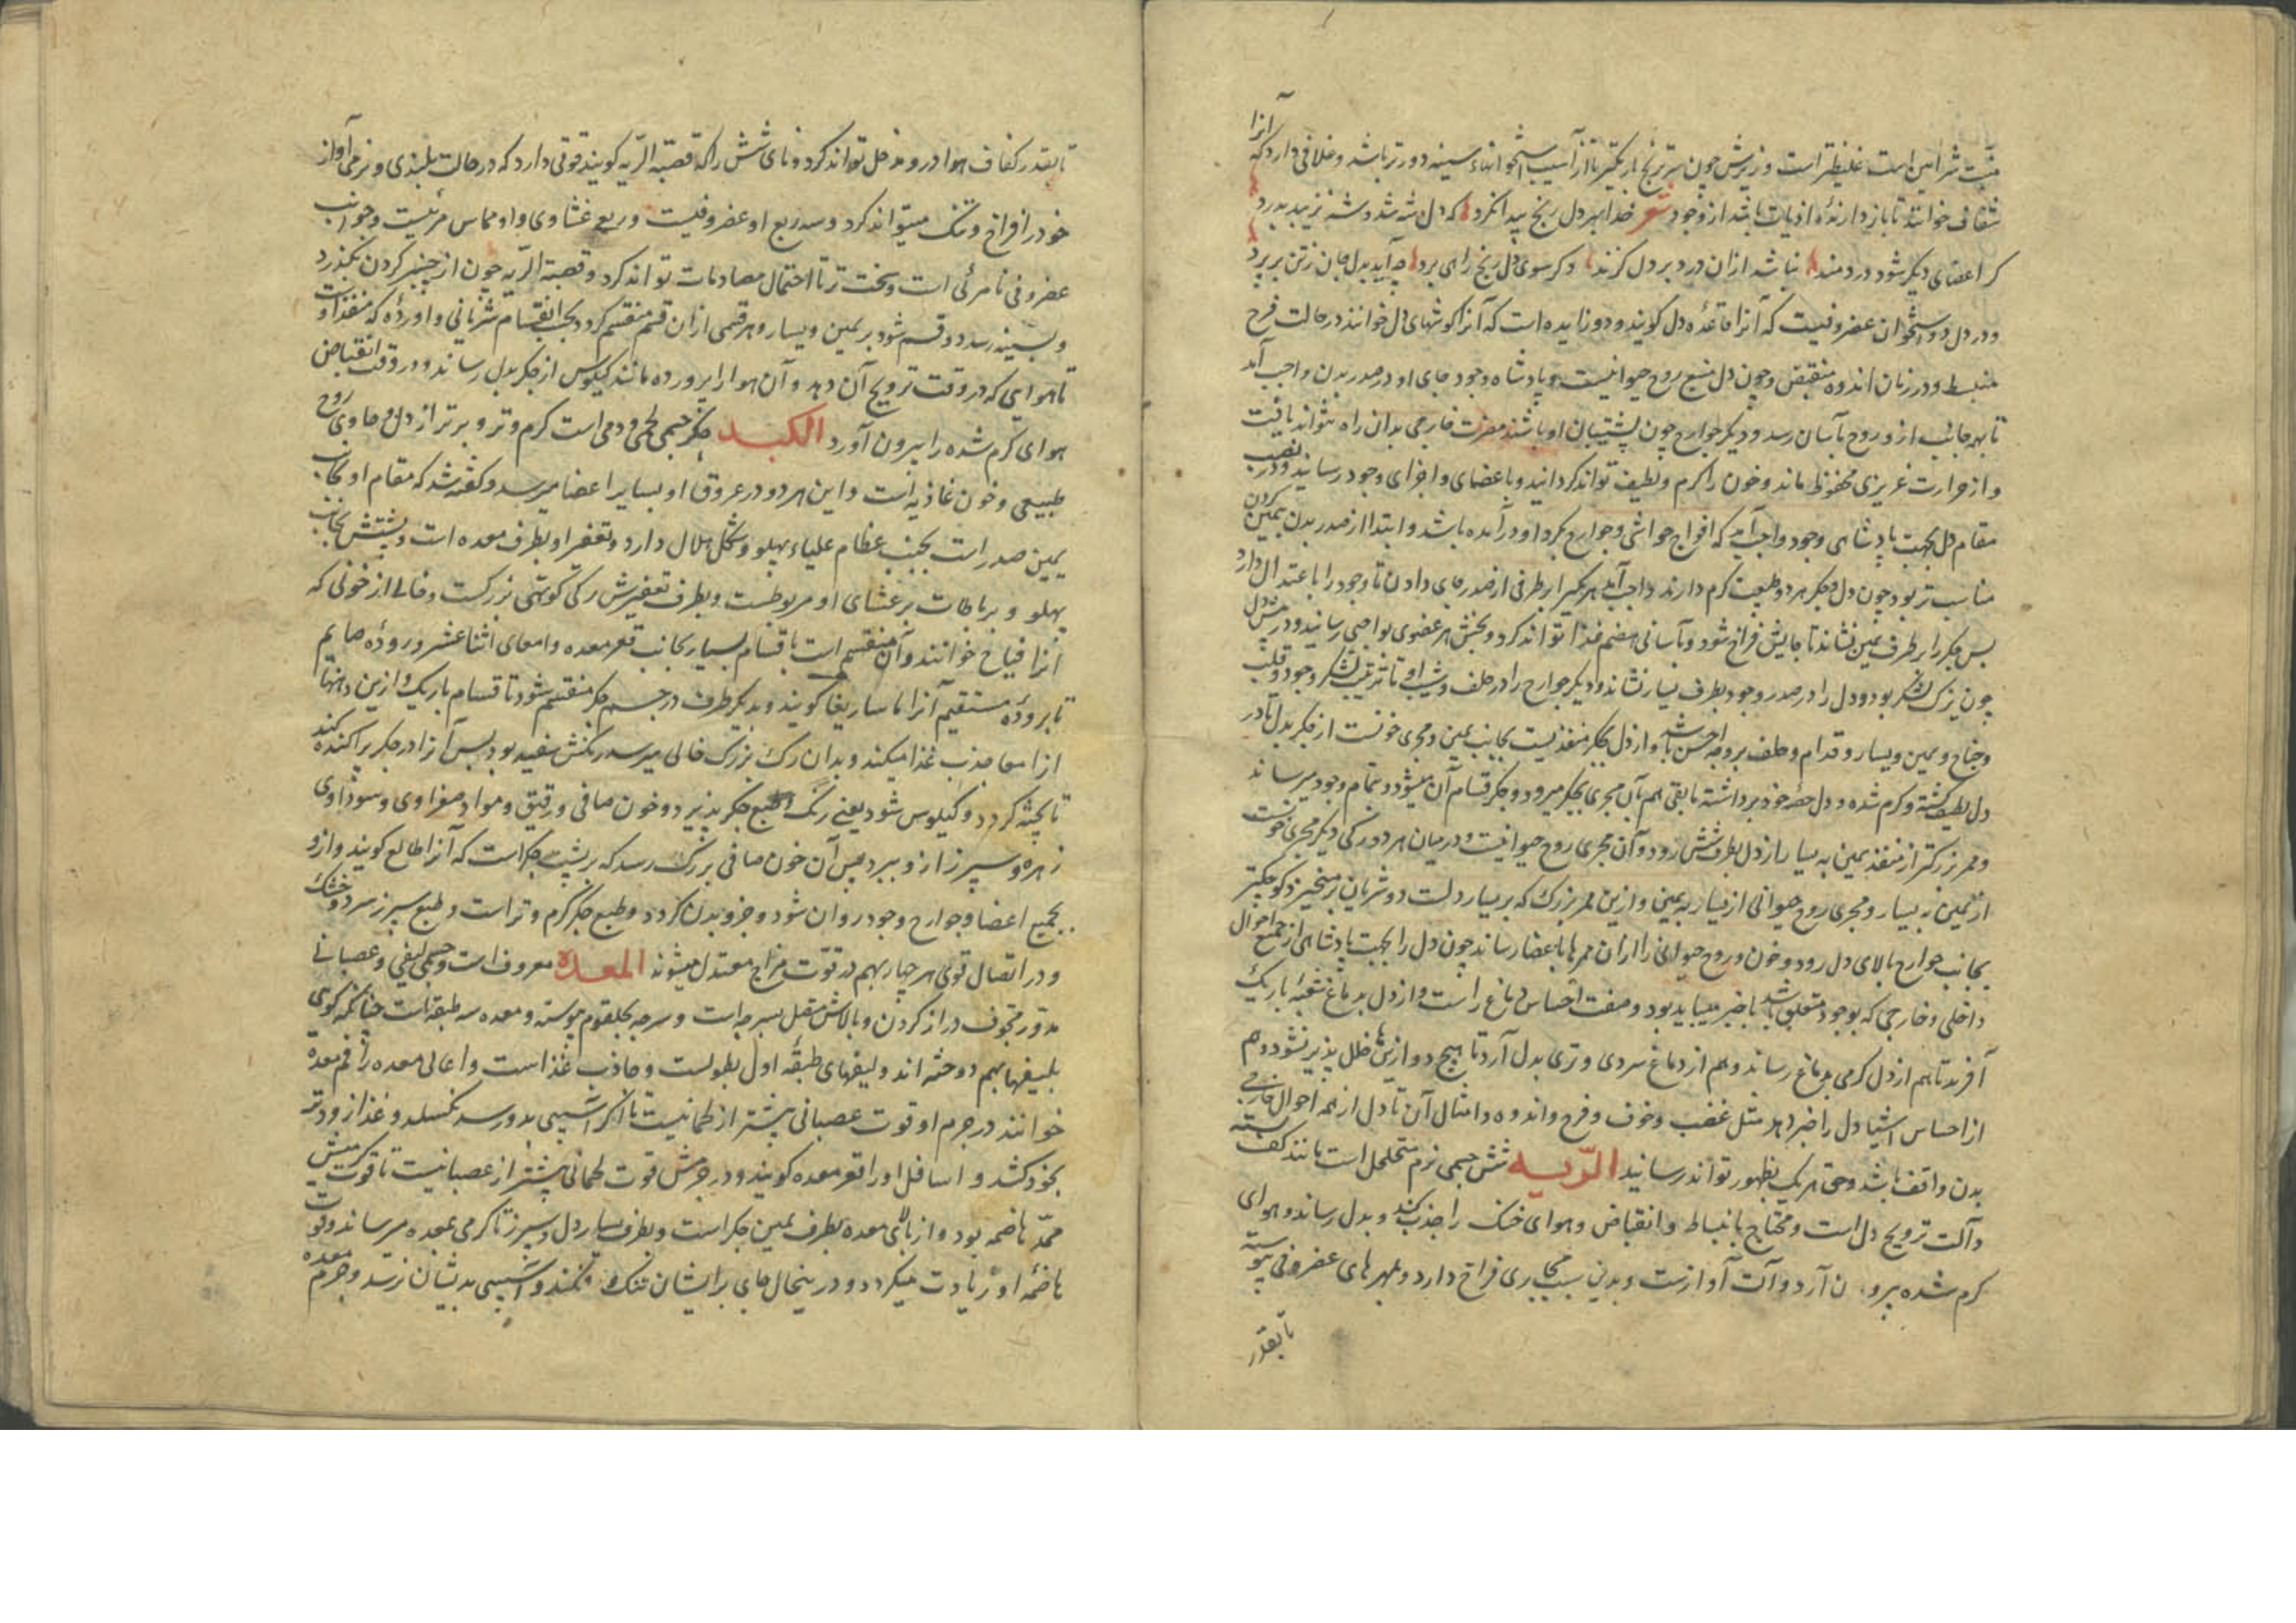 منبت شراین است غلیظتر است و زیرش چون ترنج باریکتر تا از آسیب استخوانهاء سینه دورتر باشد و غلافی دارد که آنرا
شغاف خوانند تا باز دارندهٔ اذیات باشد از وجود شعر خدا بهر دل رنج پیدا نکرد که دل شه شد و شه نزیبد بدرد
کر اعضای دیگر شود دردمند نباشد ازان درد بر دل گزند و کر سوی دل رنج راهی برد چه آید بدل جان ز تن بر برد
و در دل دو استخوان غضروفیست که آنرا قاعدهٔ دل گویند و دو زایده است که آنرا گوشهای دل خوانند در حالت فرح
منبسط و در زمان اندوه منقبض و چون دل منبع روح حیوانیست و پادشاه وجود جای او در صدر بدن واجب آمد
تا بهر جانب ازو روح بآسان رسد و دیگر جوارح چون پشتیبان او باشند مضرت خارجی بدان راه نتواند یافت
و از حرارت غریزی محفوظ ماند و خون را گرم و لطیف تواند گردانید و باعضای و اجزای وجود رسانید و در نصب
مقام دل بجهت پادشاهی وجود واجب آمد که افواج حواشی و جوارح بگرد او در آمده باشد و ابتدا از صدر بدن بیمین کردن
مناسب تر بود چون دل و جگر هر دو طبیعت گرم دارند واجب آمد هر یکی را بر طرفی از صدر جای دادن تا وجود را باعتدال دارد
پس جگر را بر طرف یمین نشاند تا جایش فراخ شود و بآسانی هضم غذا تواند کرد و بخش هر عضوی بواجبی رسانید و در پیش دل
چون یزک لشکر بود و دل را در صدر وجود بطرف یسار نشاند و دیگر جوارح را در خلف و پیش او تا ترتیب لشکر وجود و قلب
و جناح و یمین و یسار و قدام و خلف بر وجه احسن باشد و از دل بجگر منفذیست بجانب یمین و مجری خونست از جگر بدل تا در
دل لطیف گشته و گرم شده و دل حصه خود برداشته مابقی هم بآن مجری بجگر میرود و جگر قسام آن میشود و بتمام وجود میرساند
و ممر بزرگتر از منفذ یمین به یسار از دل بطرف شش رود و آن مجری روح حیوانیست و در میان هر دو رگی دیگر مجری خونست
از یمین به یسار و مجری روح حیوانی از یسار به یمین و ازین ممر بزرگ که بر یسار دلست دو شریان بر میخیزد کوچکتر
بجانب جوارح بالای دل رود و خون و روح حیوانی را ازان ممرها باعضا رساند چون دل را بجهت پادشاهی از جمیع احوال
داخلی و خارجی که بوجود متعلق باشد باخبر میباید بود و صفت احساس دماغ راست و از دل بدماغ شعبهٔ باریک
آفرید تا هم از دل گرمی بدماغ رساند و هم از دماغ سردی و تری بدل آرد تا هیچ دو ازینها خلل پذیر نشود و هم
از احساس اشیا دل را خبر دهد مثل غضب و خوف و فرح و اندوه و امثال آن تا دل از همه احوال خارجی
بدن واقف باشد و حق هر یک بظهور تواند رسانید الرّیه شش جسمی نرم متخلخل است مانند کف بسته
و آلت ترویح دل است و محتاج بانبساط و انقباض و هوای خنک را جذب کند و بدل رساند و هوای
گرم شده بیرون آرد و آلت آوازست و بدین سبب مجاری فراخ دارد و بمهرهای غضروفی پیوسته
تا بقدر
تا بقدر کفاف هوا درو مدخل تواند کرد و نای شش را که قصبة الریه گویند قوتی دارد که در حالت بلندی و نرمی آواز
خود را فراخ و تنک میتواند کرد و سه ربع او غضروفیست و ربع غشاوی و او مماس مریست و جوانب
غضروفی نامرئی است و سخت تر تا احتمال مصادمات تواند کرد و قصبة الریه چون از چنبر گردن بگذرد
و بسینه رسد دو قسم شود بر یمین و یسار و هر قسمی ازان قسم منقسم گردد بحسب انقسام شریانی و اورده که منفذ اوست
تا هوایی که در وقت ترویح آن دهد و آن هوا را پرورده مانند کیلوس از جگر بدل رساند و در وقت انقباض
هوای گرم شده را بیرون آورد الکبد جگر جسمی لحمی و دمی است گرم و تر و برتر از دل و حاوی روح
طبیعی و خون غاذیه است و این هر دو در عروق او بسایر اعضا میرسد و گفته شد که مقام او بجانب
یمین صدر است بجنب عظام علیاء پهلو و شکل هلال دارد و تقعیر او بطرف معده است و پشتش بجانب
پهلو و برباطات بر غشای او مربوطست و بطرف تقعیرش رگی گوشتی بزرگست و خالی از خونی که
آنرا خوانند و آن منقسم است باقسام بسیار بجانب قعر معده و امعای اثنا عشر و رودهٔ صایم
تا برودهٔ مستقیم آنرا ماساریقا گویند و بدیگر طرف در جسم جگر منقسم شود تا قسام باریک و ازین دهنها
از امعا جذب غذا میکند و بدان رگ بزرگ خالی میرسد رنگش سفید بود پس آنرا در جگر پراکنده کند
تا پخته گردد و کیلوس شود یعنی رنگ و طبع جگر پذیرد و خون صافی و رقیق و مواد صفراوی و سوداوی
زهره و سپرز ازو ببرد پس آن خون صافی بزرگ رسد که بر پشت جگر است که آنرا طالع گویند و ازو
بجمیع اعضا و جوارح وجود روان شود و جزو بدن گردد و طبع جگر گرم و تر است و طبع سپرز سرد و خشک
و در اتصال قوی هر چهار بهم در قوت مزاج معتدل میشوند المعده معروف است و جسمی لیفی و عصبانی
مدور مجوف دراز گردن و بالاش متصل بسر جهاست و سرجه بحلقوم پیوسته و معده سه طبقه است چنانکه گویی
بلیفها بهم دوخته اند و لیفهای طبقهٔ اول بطولست و جاذب غذاست و اعالی معده را فم معده
خوانند در جرم او قوت عصبانی بیشتر از لحمانیست تا اگر آسیبی بدو رسد نگسلد و غذا زودتر
بخود کشد و اسافل او را قعر معده گویند و در جرمش قوت لحمانی بیشتر از عصبانیست تا قوت گرمیش
ممد هاضمه بود و از بالای معده بطرف یمین جگر است و بطرف یسار دل و سپرز تا گرمی بمعده میرساند و قوت
هاضمهٔ او زیادت میگردد و درینحال جای برایشان تنک نکنند و آسیبی بدیشان نرسد و جرم معده